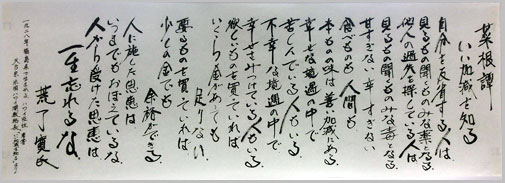 菜根譚
いい加減を知る
自分を反省する人は
見るもの聞くものみな薬となる
他人の過失を探している人は
見るもの聞くものみな毒となる
甘すぎない 辛すぎない
食べもの 人間も
本もの味は善い加減にある
幸せな境遇の中で
苦しんでいる人もいる
不幸な境遇の中で
幸せをみつけている人もいる
欲しいものを買っていれば
いくら金があっても
足りない
要るものを買っていれば
少しの金でも
余裕ができる
人に施した恩恵は
いつまでもおぼえているな
人から受けた恩恵は
一生忘れるな
荒了寛